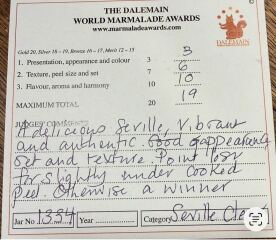 THE DALEMAIN
WORLD MARMALADE AWARDS
www.marmaladeawards.com
DALEMAIN
Gold 20, Silver 18 - 19, Bronze 16 - 17, Merit 12 - 15
1. Presentation, appearance and colour 3 3
2. Texture, peel size and set 7 6
3. Flavour, aroma and harmony 10 10
MAXIMUM TOTAL 20 19
JUDGES' COMMENTS
A delicious Seville, Vibrant
and authentic. Good appearance
set and texture. Point lost
for slightly under cooked
peel. Otherwise a winner
Jar No 1334 Year Category Seville